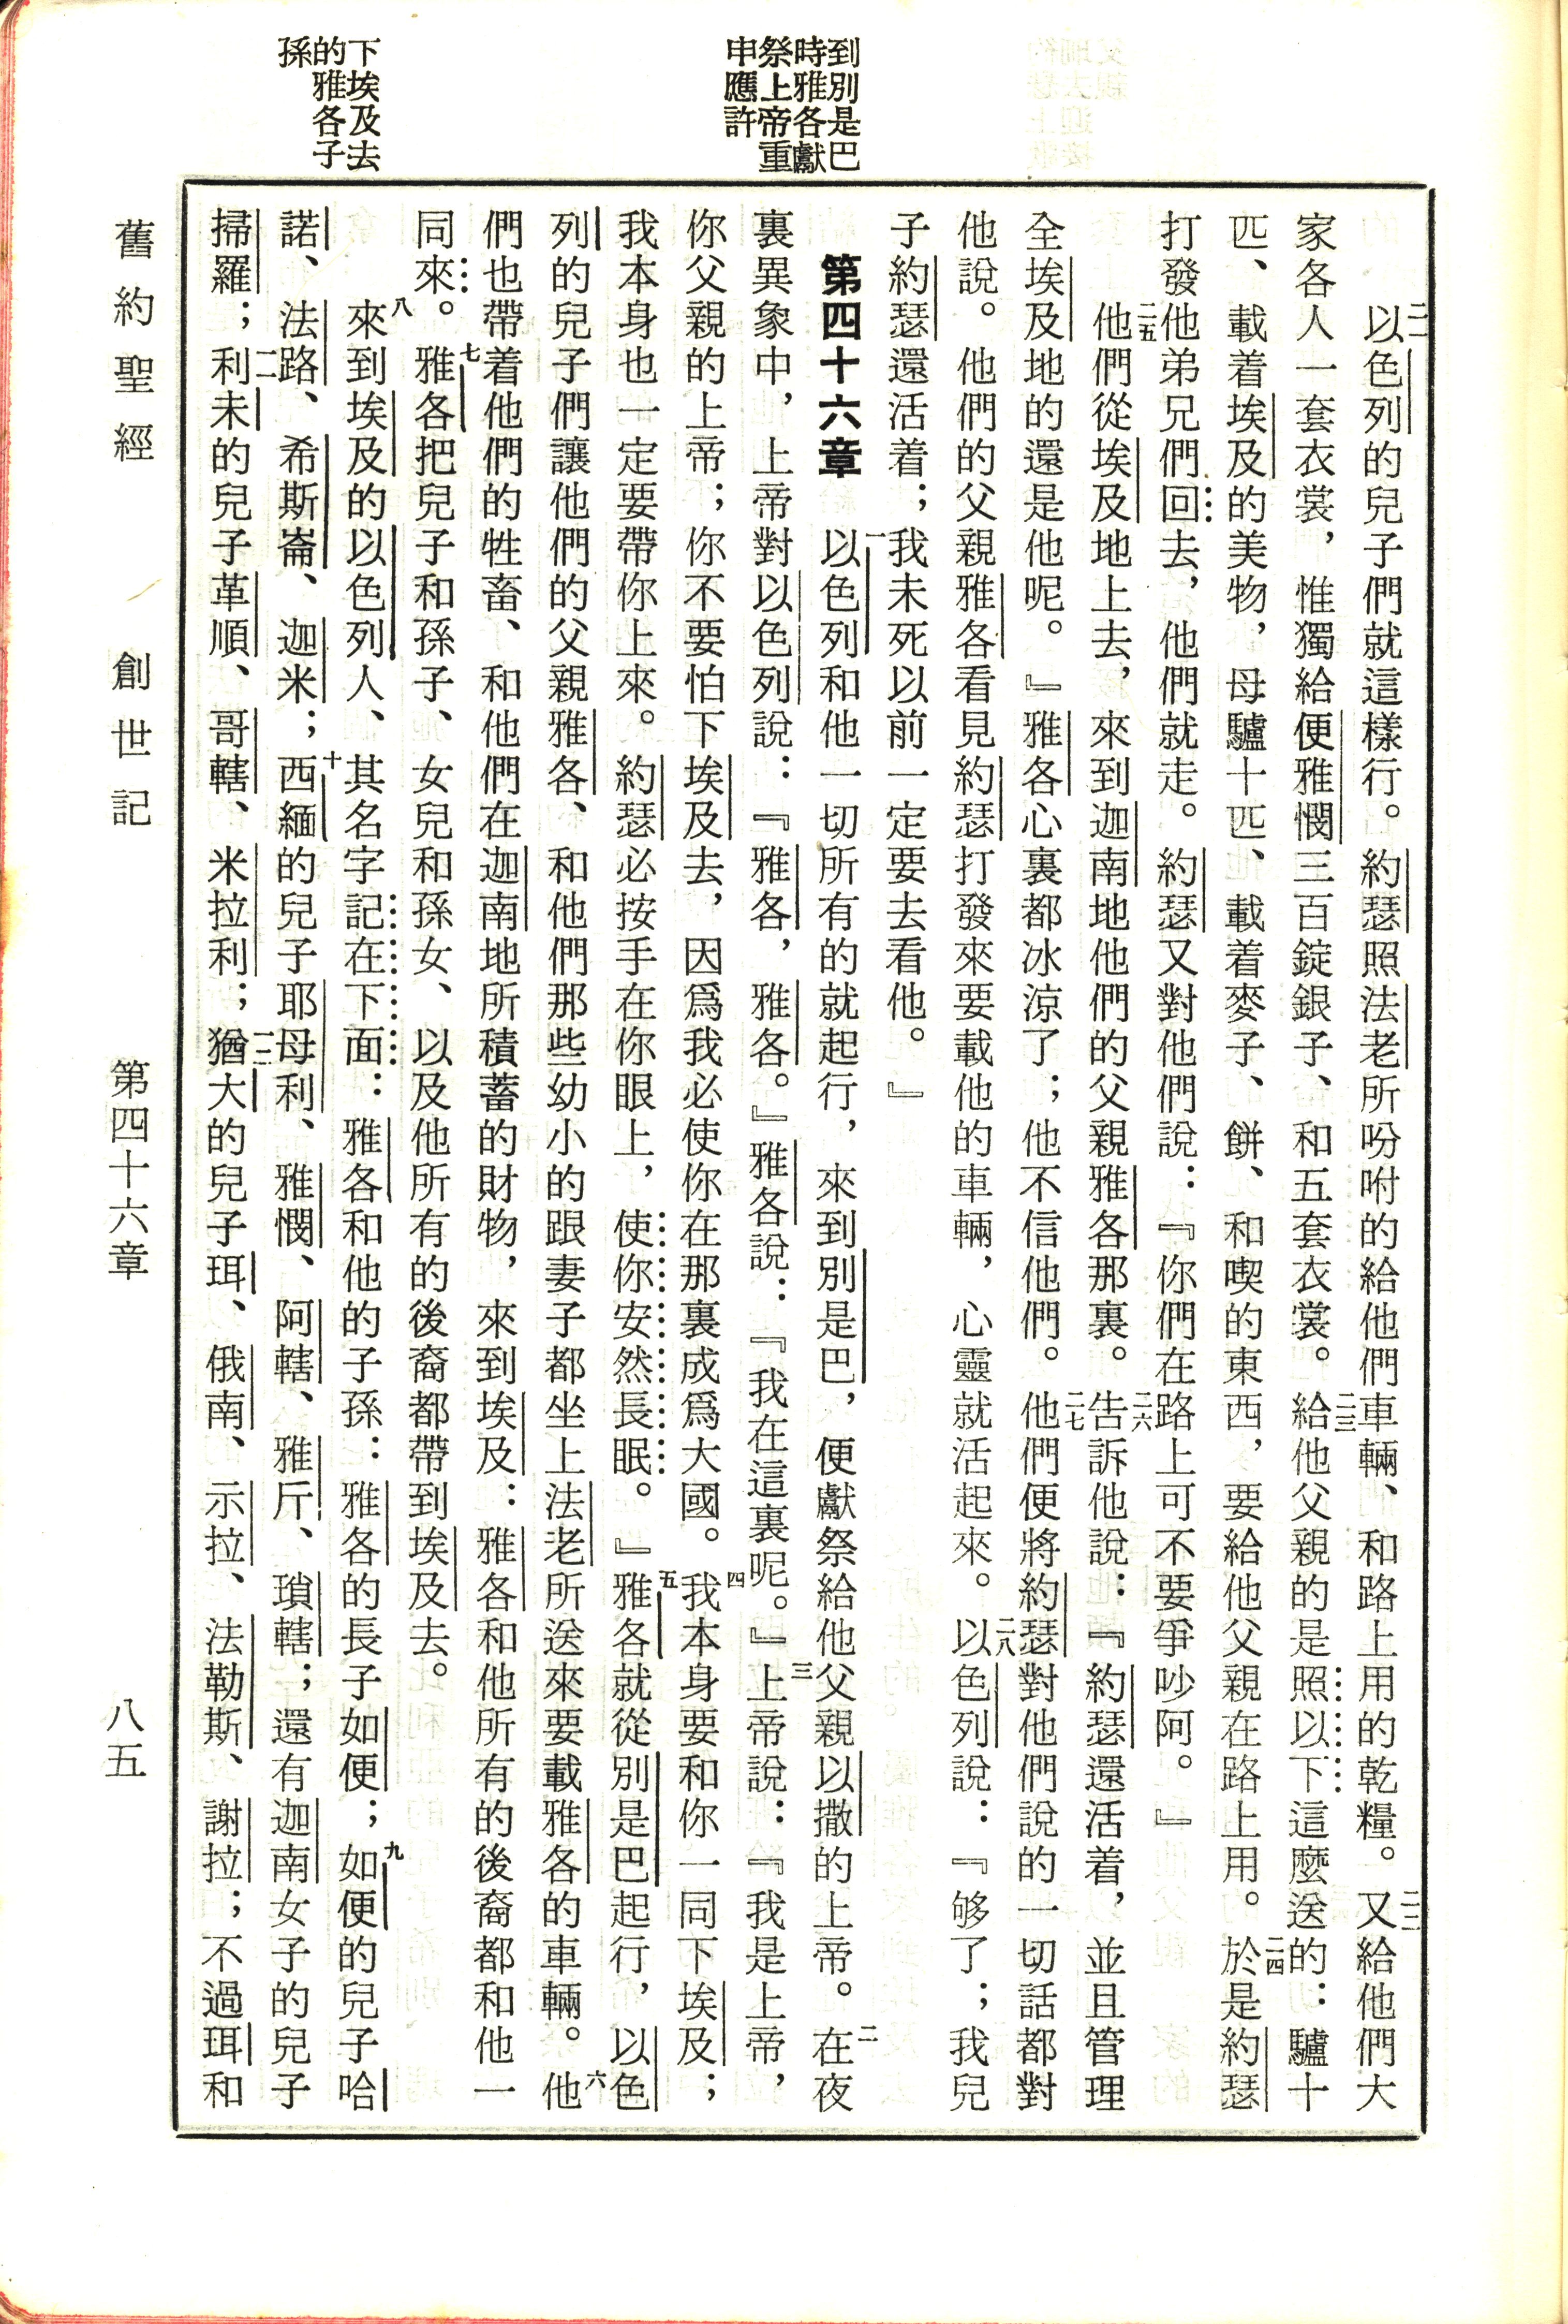 到別是巴
時雅各獻
祭上帝重
申應許
下埃及去
的雅各子
孫
二一以色列的兒子們就這樣行。約瑟照法老所吩咐的給他們車輛、和路上用的乾糧。二二又給他們大
家各人一套衣裳，惟獨給便雅憫三百錠銀子、和五套衣裳。二三給他父親的是照以下這麼送的：驢十
匹、載着埃及的美物，母驢十匹、載着麥子、餅、和喫的東西，要給他父親在路上用。二四於是約瑟
打發他弟兄們回去，他們就走。約瑟又對他們說：『你們在路上可不要爭吵阿。』
二五他們從埃及地上去，來到迦南地他們的父親雅各那裏。二六告訴他說：『約瑟還活着，並且管理
全埃及地的還是他呢。』雅各心裏都冰涼了；他不信他們。二七他們便將約瑟對他們說的一切話都對
他說。他們的父親雅各看見約瑟打發來要載他的車輛，心靈就活起來。二八以色列說：『够了；我兒
子約瑟還活着；我未死以前一定要去看他。』
第四十六章　一以色列和他一切所有的就起行，來到別是巴，便獻祭給他父親以撒的上帝。二在夜
裏異象中，上帝對以色列說：『雅各，雅各。』雅各說：『我在這裏呢。』三上帝說：『我是上帝，
你父親的上帝；你不要怕下埃及去，因爲我必使你在那裏成爲大國。四我本身要和你一同下埃及；
我本身也一定要帶你上來。約瑟必按手在你眼上，使你安然長眠。』五雅各就從別是巴起行，以色
列的兒子們讓他們的父親雅各、和他們那些幼小的跟妻子都坐上法老所送來要載雅各的車輛。六他
們也帶着他們的牲畜、和他們在迦南地所積蓄的財物，來到埃及：雅各和他所有的後裔都和他一
同來。七雅各把兒子和孫子、女兒和孫女、以及他所有的後裔都帶到埃及去。
八來到埃及的以色列人、其名字記在下面：雅各和他的子孫：雅各的長子如便；九如便的兒子哈
諾、法路、希斯崙、迦米；十西緬的兒子耶母利、雅憫、阿轄、雅斤、瑣轄；還有迦南女子的兒子
掃羅；一一利未的兒子革順、哥轄、米拉利；一二猶大的兒子珥、俄南、示拉、法勒斯、謝拉；不過珥和
舊約聖經　創世記　第四十六章　八五